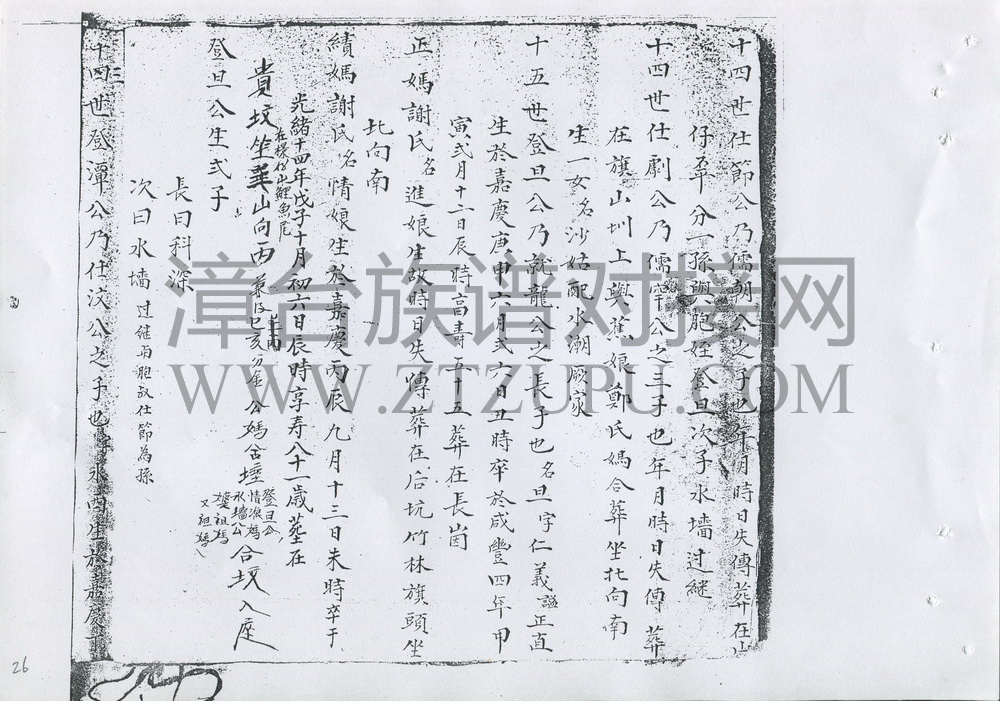 十四世仕節公乃儒朝公之子也年月時日失傳葬在山
仔 分一孫與胞姪登旦次子水墻过継
十四世仕劇公乃儒 公之三子也年月時日失傳葬
在旗山圳上與蕉娘鄭氏媽合葬坐北向南
生一女名沙姑配水潮厰家
十五世登旦公乃就龍公之長子也名旦字仁義謚正直
生於嘉慶庚申六月弍六日丑時卒於咸豐四年甲
寅弍月十二日辰時富壽五十五葬在長崗
正媽謝氏名進娘生故時日失傳葬在后坑竹林旗頭坐
北向南
續媽謝氏名情娘生於嘉慶丙辰九月十三日未時卒于
光緒十四年戊子十月初六日辰時享寿八十一歲葬在
在 仔山鯉魚尾
貴坟坐 山向丙兼 巳亥分金公媽 合坟入座
登旦公
情娘媽
水墻公
又祖媽
登旦公生弍子
長曰科深
次曰水墻过継与胞叔仕節為孫
十四世登潭公乃仕汶公之三子也字永酉生於嘉慶
26
漳台族谱对接网
WWW.ZTZUPU.COM